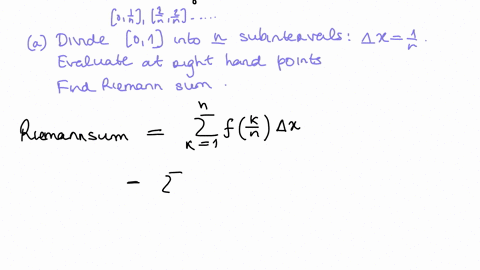 [0, 1/n], [1/n, 2/n] .....
(a) Divide [0,1] into n subintervals: Δx = 1/n.
Evaluate at right hand points
Find Riemann sum.
Riemann sum = \sum_{k=1}^{n} f(k/n) Δx
= Σ